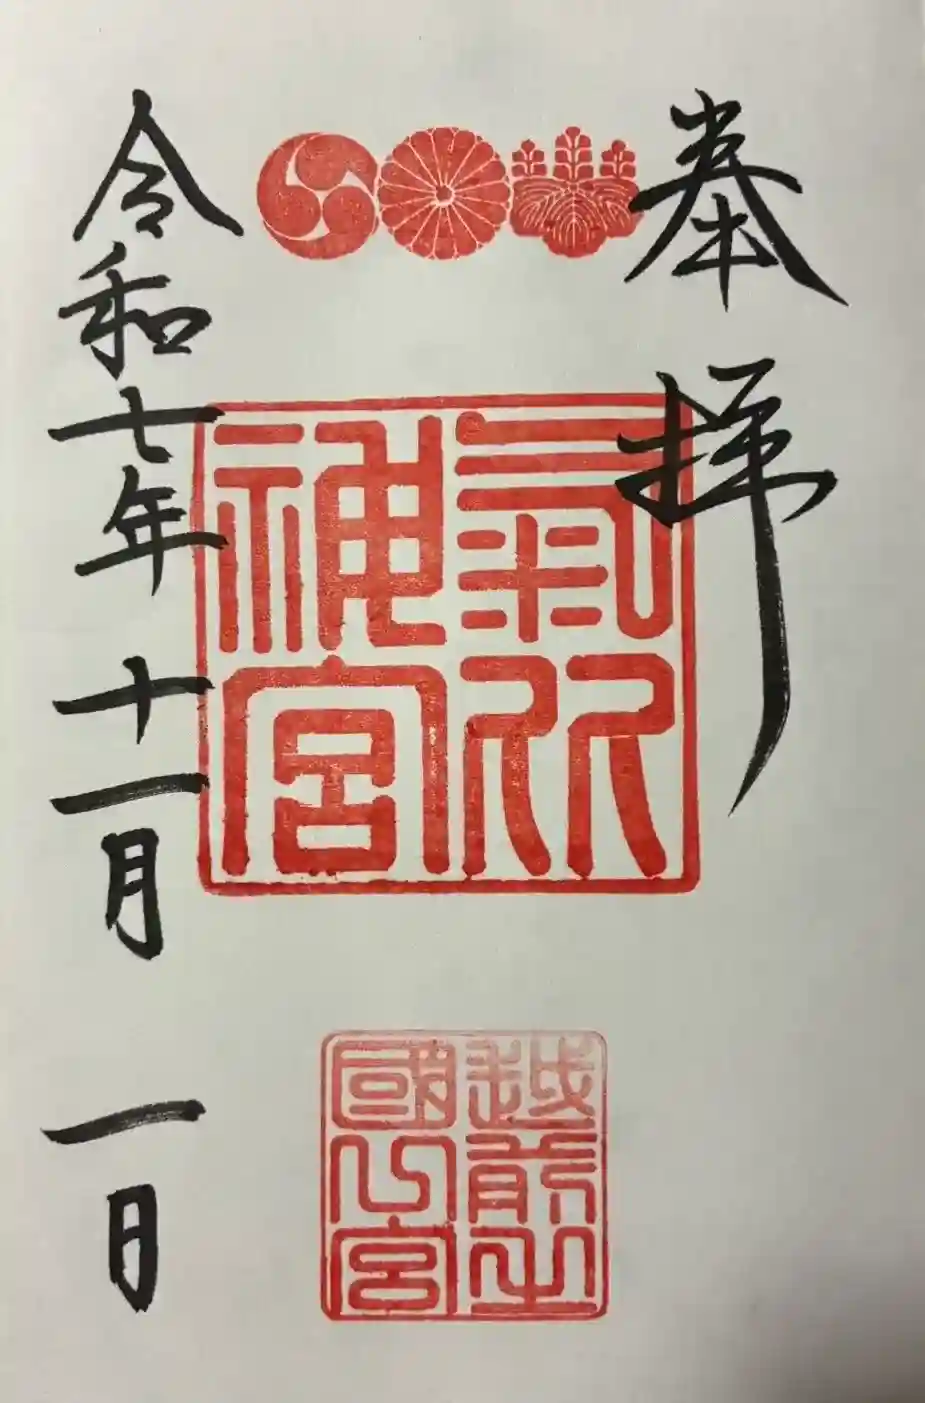 奉拝
氣比
神宮
越前之
國一宮
令和七年 十一月 一日